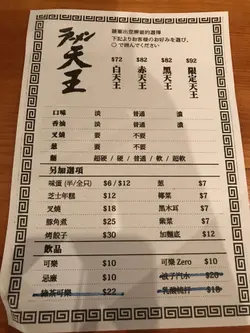 ラーメン天王
請圈出您所需的選擇
下記よりお客様のお好みを選び、
○で囲んでください
$72 $82 $82 $92
白天王 赤天王 黑天王 限定天王
口味 淡 普通 濃
香油 淡 普通 濃
叉燒 要 不要
蔥 要 不要
麵 超硬 / 硬 / 普通 / 軟 / 超軟
另加選項
味蛋 (半/全只) $6 / $12 蔥 $7
芝士年糕 $12 椰菜 $7
叉燒 $18 黑木耳 $7
豚角煮 $25 紫菜 $7
烤餃子 $30 加麵底 $12
飲品
可樂 $10 可樂 Zero $10
忌廉 $10 波子汽水 $20
綠茶可樂 $22 乳酸梳打 $18